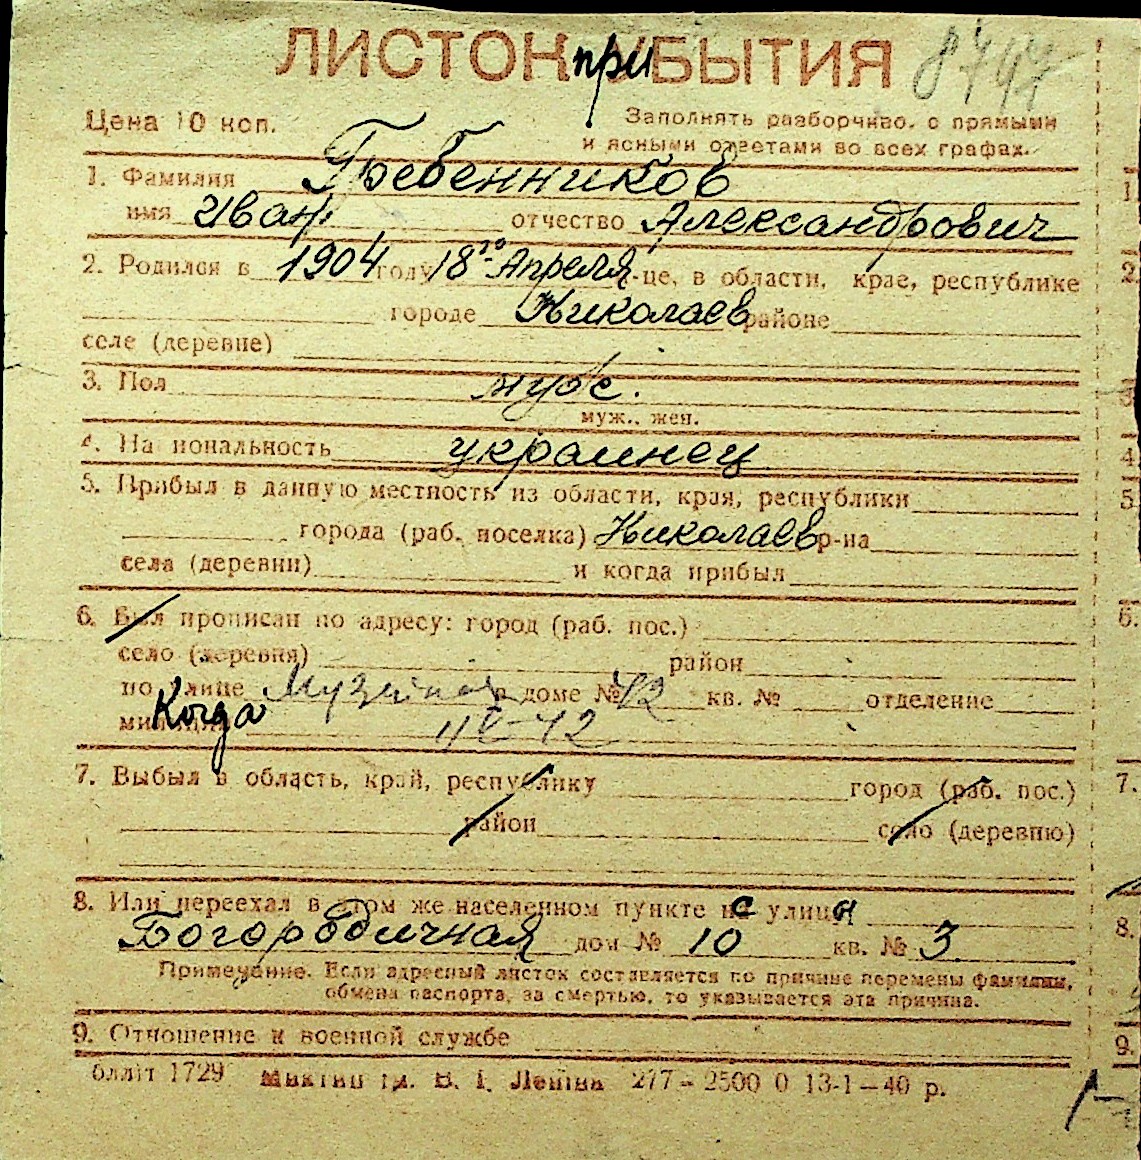 ЛИСТОК приБЫТИЯ
Цена 10 коп.
Заполнять разборчиво, с прямыми
и ясными ответами во всех графах.
1. Фамилия Гребенников
имя Иван отчество Александрович
2. Родился в 1904 году 18го Апреля -це, в области, крае, республике
городе Николаев районе
селе (деревне)
3. Пол муж.
муж., жен.
4. На иональность украинец
5. Прибыл в данную местность из области, края, республики
города (раб. поселка) Николаев р-на
села (деревни) и когда прибыл
6. Был прописан по адресу: город (раб. пос.)
село (деревня) район
по улице Музейная в доме № 42 кв. № отделение
Когда
7. Выбыл в область, край, республику город (раб. пос.)
район село (деревню)
8. Или переехал в этом же населенном пункте с улицы
Богородичная дом № 10 кв. № 3
Примечание. Если адресный листок составляется по причине перемены фамилии,
обмена паспорта, за смертью, то указывается эта причина.
9. Отношение к военной службе
1729 В. І. Леніна 277-2500 0 13-1-40 р.